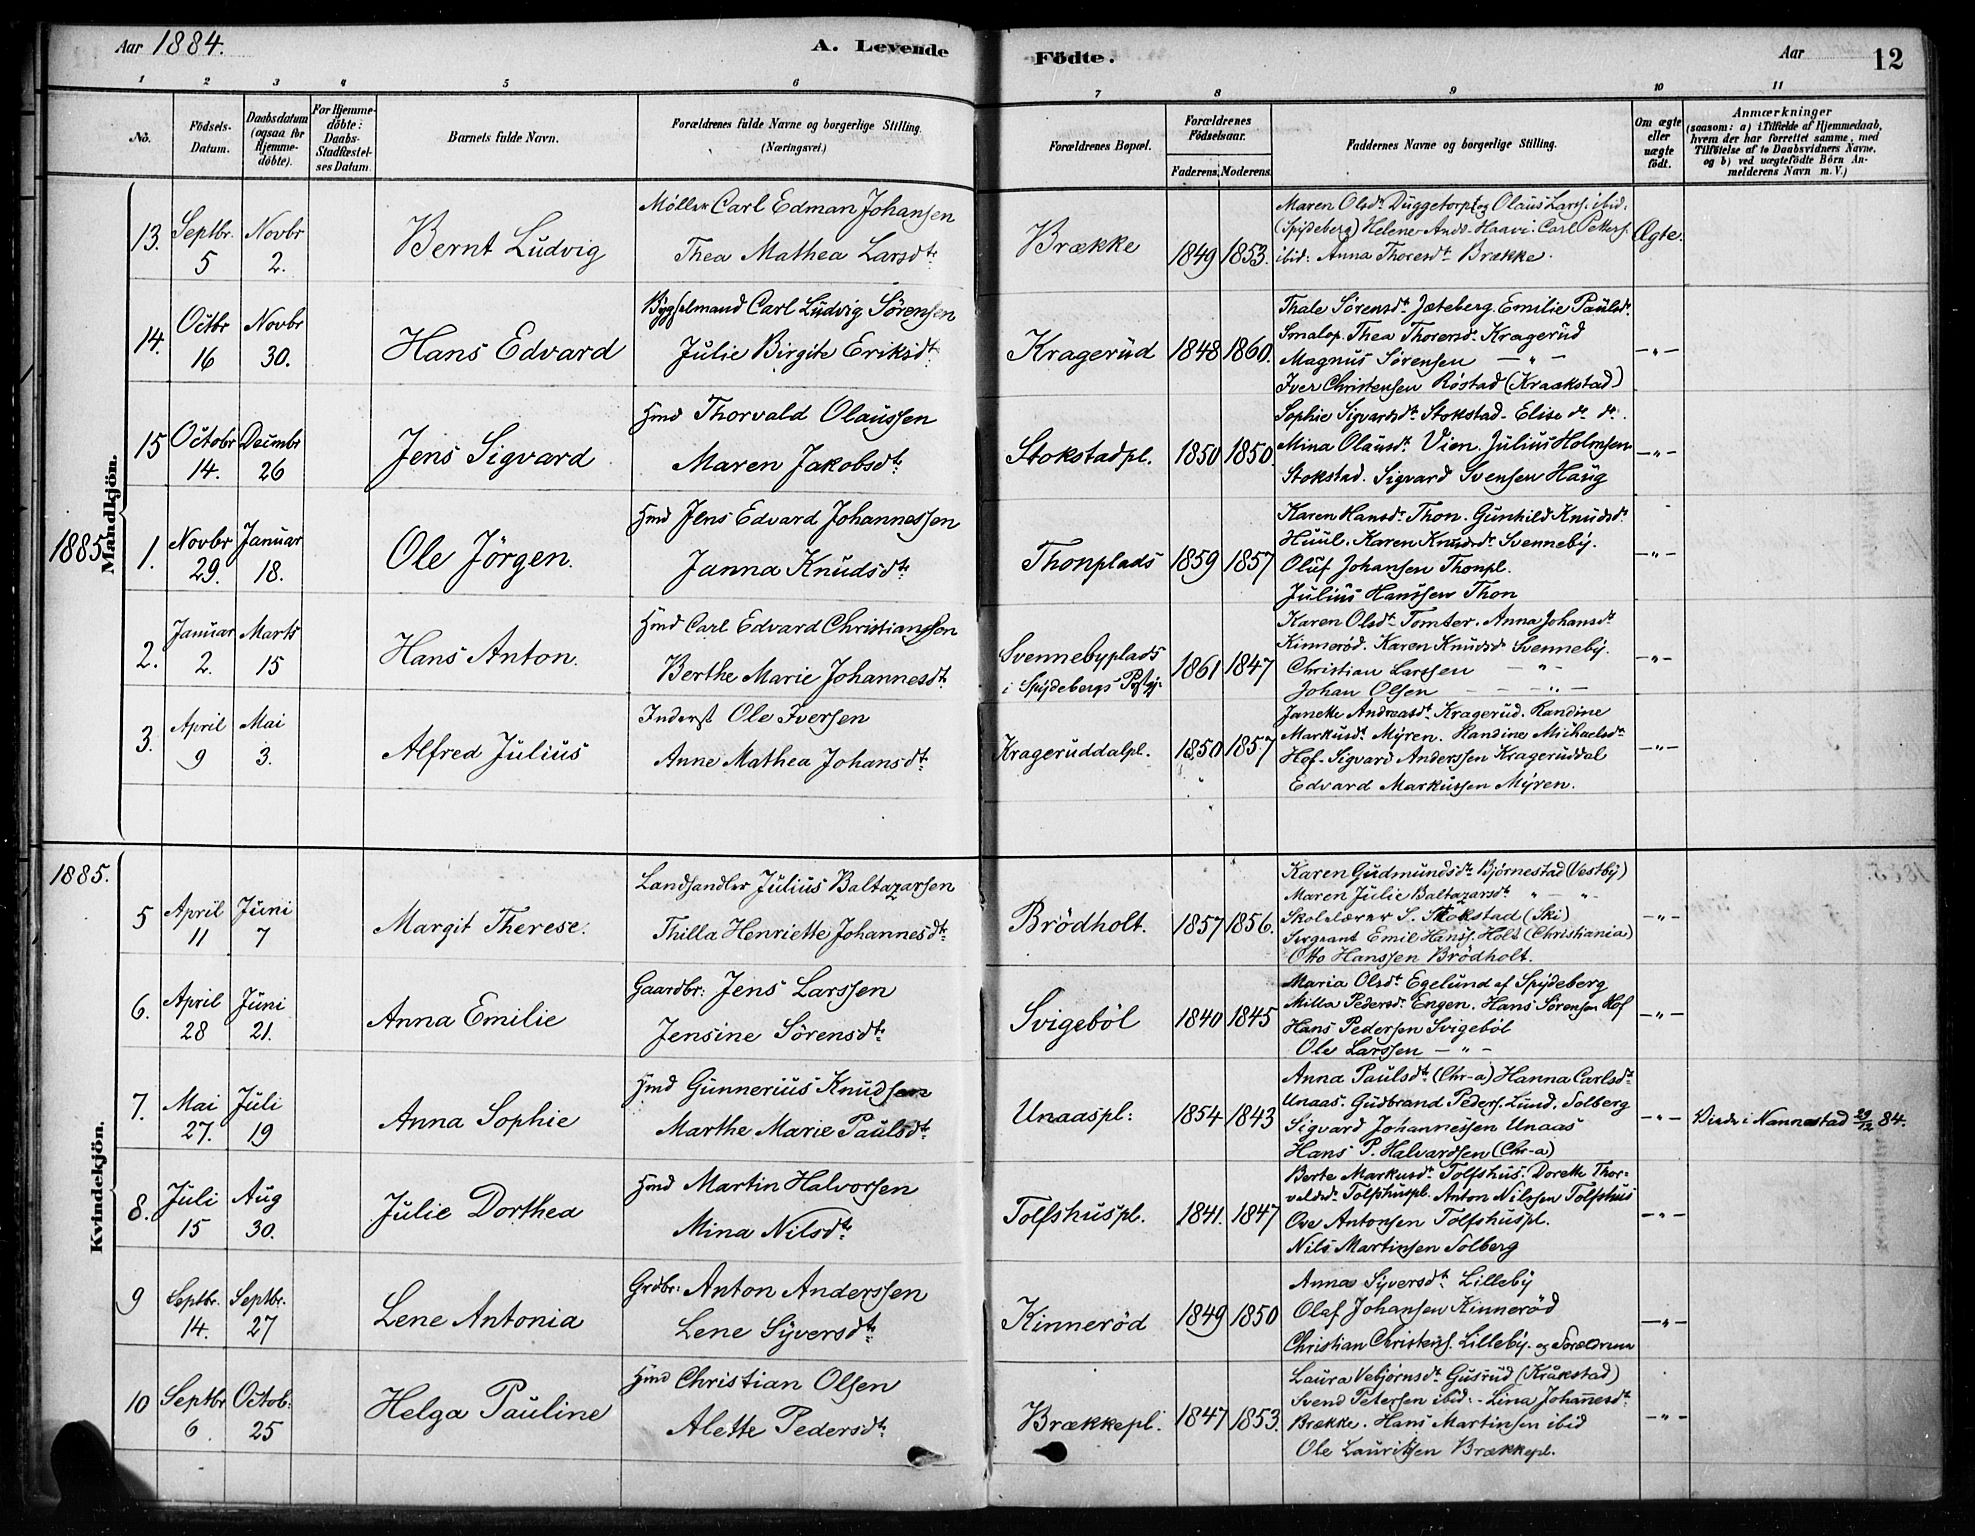 Aar 1884. A. Levende Födte. Aar 12
1 2 3 4 5 6 7 8 9 10 11
No. Födsels-Datum. Daabsdatum (ogsaa for Hjemmedöbte). For Hjemmedöbte: Daabs-Stadfæstelses Datum. Barnets fulde Navn. Forældrenes fulde Navne og borgerlige Stilling. (Næringsvei.) Forældrenes Bopæl. Forældrenes Födselsaar. Faderens. Moderens. Faddernes Navne og borgerlige Stilling. Om ægte eller uægte födt. Anmærkninger (saasom: a) i Tilfælde af Hjemmedaab, hvem der har forrettet samme, med Tilföielse af to Daabsvidners Navne, og b) ved uægtefödte Börn Anmelderens Navn m. V.)
Mandkjön.
13. Septbr. 5 Novbr 2. Bernt Ludvig
Møller Carl Edman Johansen
Thea Mathea Larsdtr
Brække 1849 1853.
Maren Olsdr Duggetorp og Olaus Larss. ibid:
(Spydeberg) Helene Ands. Haavi. Carl Petters.
ibid: Anna Thoresdtr Brække.
Ægte.
14. Octbr 16 Novbr 30. Hans Edvard
Bygselmand Carl Ludvig Sörensen
Julie Birgite Eriksdtr
Kragerud 1848 1860.
Thale Sörensdtr Jæteberg. Emilie Paulsdtr
Smalop. Thea Thoresd. Kragerud
Magnus Sörensen — " —
Iver Christensen Röstad (Kraakstad)
— " —
15 Octobr 14. Decmbr 26 Jens Sigvard
Hmd Thorvald Olaussen
Maren Jakobsdtr
Stokstadpl. 1850 1850
Sophie Sigvardsdtr Stokstad. Elise dr dr.
Mina Olausdtr Vien. Julius Holmsen
Stokstad. Sigvard Svensen Haug
— " —
1885
1. Novbr 29. Januar 18. Ole Jörgen.
Hmd Jens Edvard Johannessen
Janna Knudsdtr
Thonplads 1859 1857
Karen Hansdtr Thon. Gunhild Knudsdtr
Huul. Karen Knudsdtr Svenneby.
Oluf Johansen Thonpl.
Julius Hanssen Thon
— " —
2. Januar 2. Marts 15 Hans Anton.
Hmd Carl Edvard Christianssen
Berthe Marie Johannesdtr
Svennebyplads
i Spydebergs Pstgj.
1861 1847
Karen Olsdtr Tomter. Anna Johansdtr
Kinnerød. Karen Knudsd Svenneby.
Christian Larssen — " —
Johan Olsen — — — " —
— " —
3. April 9 Mai 3. Alfred Julius
Inderst Ole Iversen
Anne Mathea Johansdtr
Krageruddalpl. 1850 1857
Janeke Andreasdtr Kragerud. Randine
Markusdtr Myren. Randine Michaelsdtr
Hof. Sigvard Anderssen Krageruddal
Edvard Markussen Myren.
— " —
1885.
Kvindekjön.
5 April 11 Juni 7 Margit Therese.
Landhandler Julius Baltazarsen
Thilla Henriette Johannesdtr
Brödholt. 1857 1856.
Karen Gudmundsdtr Björnestad (Vestby)
Maren Julie Baltazarsdtr " — " —
Skolelærer S. Stokstad (Ski)
Sergeant Emil Hanss. Holt (Christiania)
Otto Hanssen Brödholt.
— " —
6. April 28 Juni 21. Anna Emilie
Gaardbr: Jens Larssen
Jensine Sörensdtr
Svigeböl 1840 1845
Maria Olsdtr Egelund af Spydeberg
Milla Pedersdr Engen. Hans Sörensen Hof
Hans Pedersen Svigeböl
Ole Larssen — " —
— " —
7. Mai 27. Juli 19 Anna Sophie
Hmd Gunnerius Knudsen
Marthe Marie Paulsdtr
Unaaspl: 1854 1843
Anna Paulsdtr (Chr-a) Hanna Carlsdtr
Unaas. Gudbrand Peders. Lund. Solberg
Sigvard Johannessen Unaas
Hans P. Halvardsen (Chr-a)
— " — Viede i Nannestad 29/12 84.
8. Juli 15 Aug 30. Julie Dorthea
Hmd Martin Halvorsen
Mina Nilsdtr
Tolfshuspl. 1841. 1847
Berte Markusdtr Tolfshus. Dorette Thor=
valdsdr Tolfshuspl. Anton Nilssen Tolfshus
Ove Antonsen Tolfshuspl.
Nils Martinsen Solberg
— " —
9 Septbr. 14. Septbr. 27 Lene Antonia
Grdbr: Anton Anderssen
Lene Syversdtr
Kinneröd 1849 1850
Anna Syversdtr Lilleby
Olaf Johansen Kinneröd
Christian Christens. Lilleby. og Forældrene
— " —
10 Septbr 6. Octob: 25 Helga Pauline
Hmd Christian Olsen
Alette Pedersdtr
Brækkepl. 1847 1853.
Laura Vebjörnsdtr Gusrud (Kråkstad)
Svend Petersen ibid: - Lina Johannesdtr
Brække. Hans Martinsen ibid
Ole Lauritsen Brækkepl.
— " —